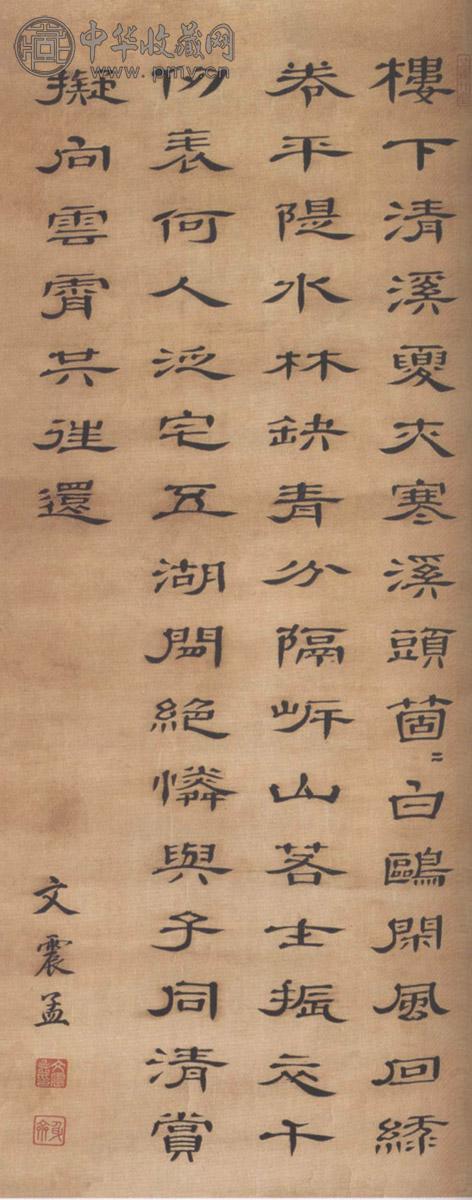 中华收藏网
www.pmv.cn
樓下清溪夏亦寒溪頭箇〻白鷗閑風回綠
卷平隄水林缺青分隔岸山若士振衣千
仞表何人泛宅五湖間絕憐與子同清賞
擬向雲霄共往還
文震孟